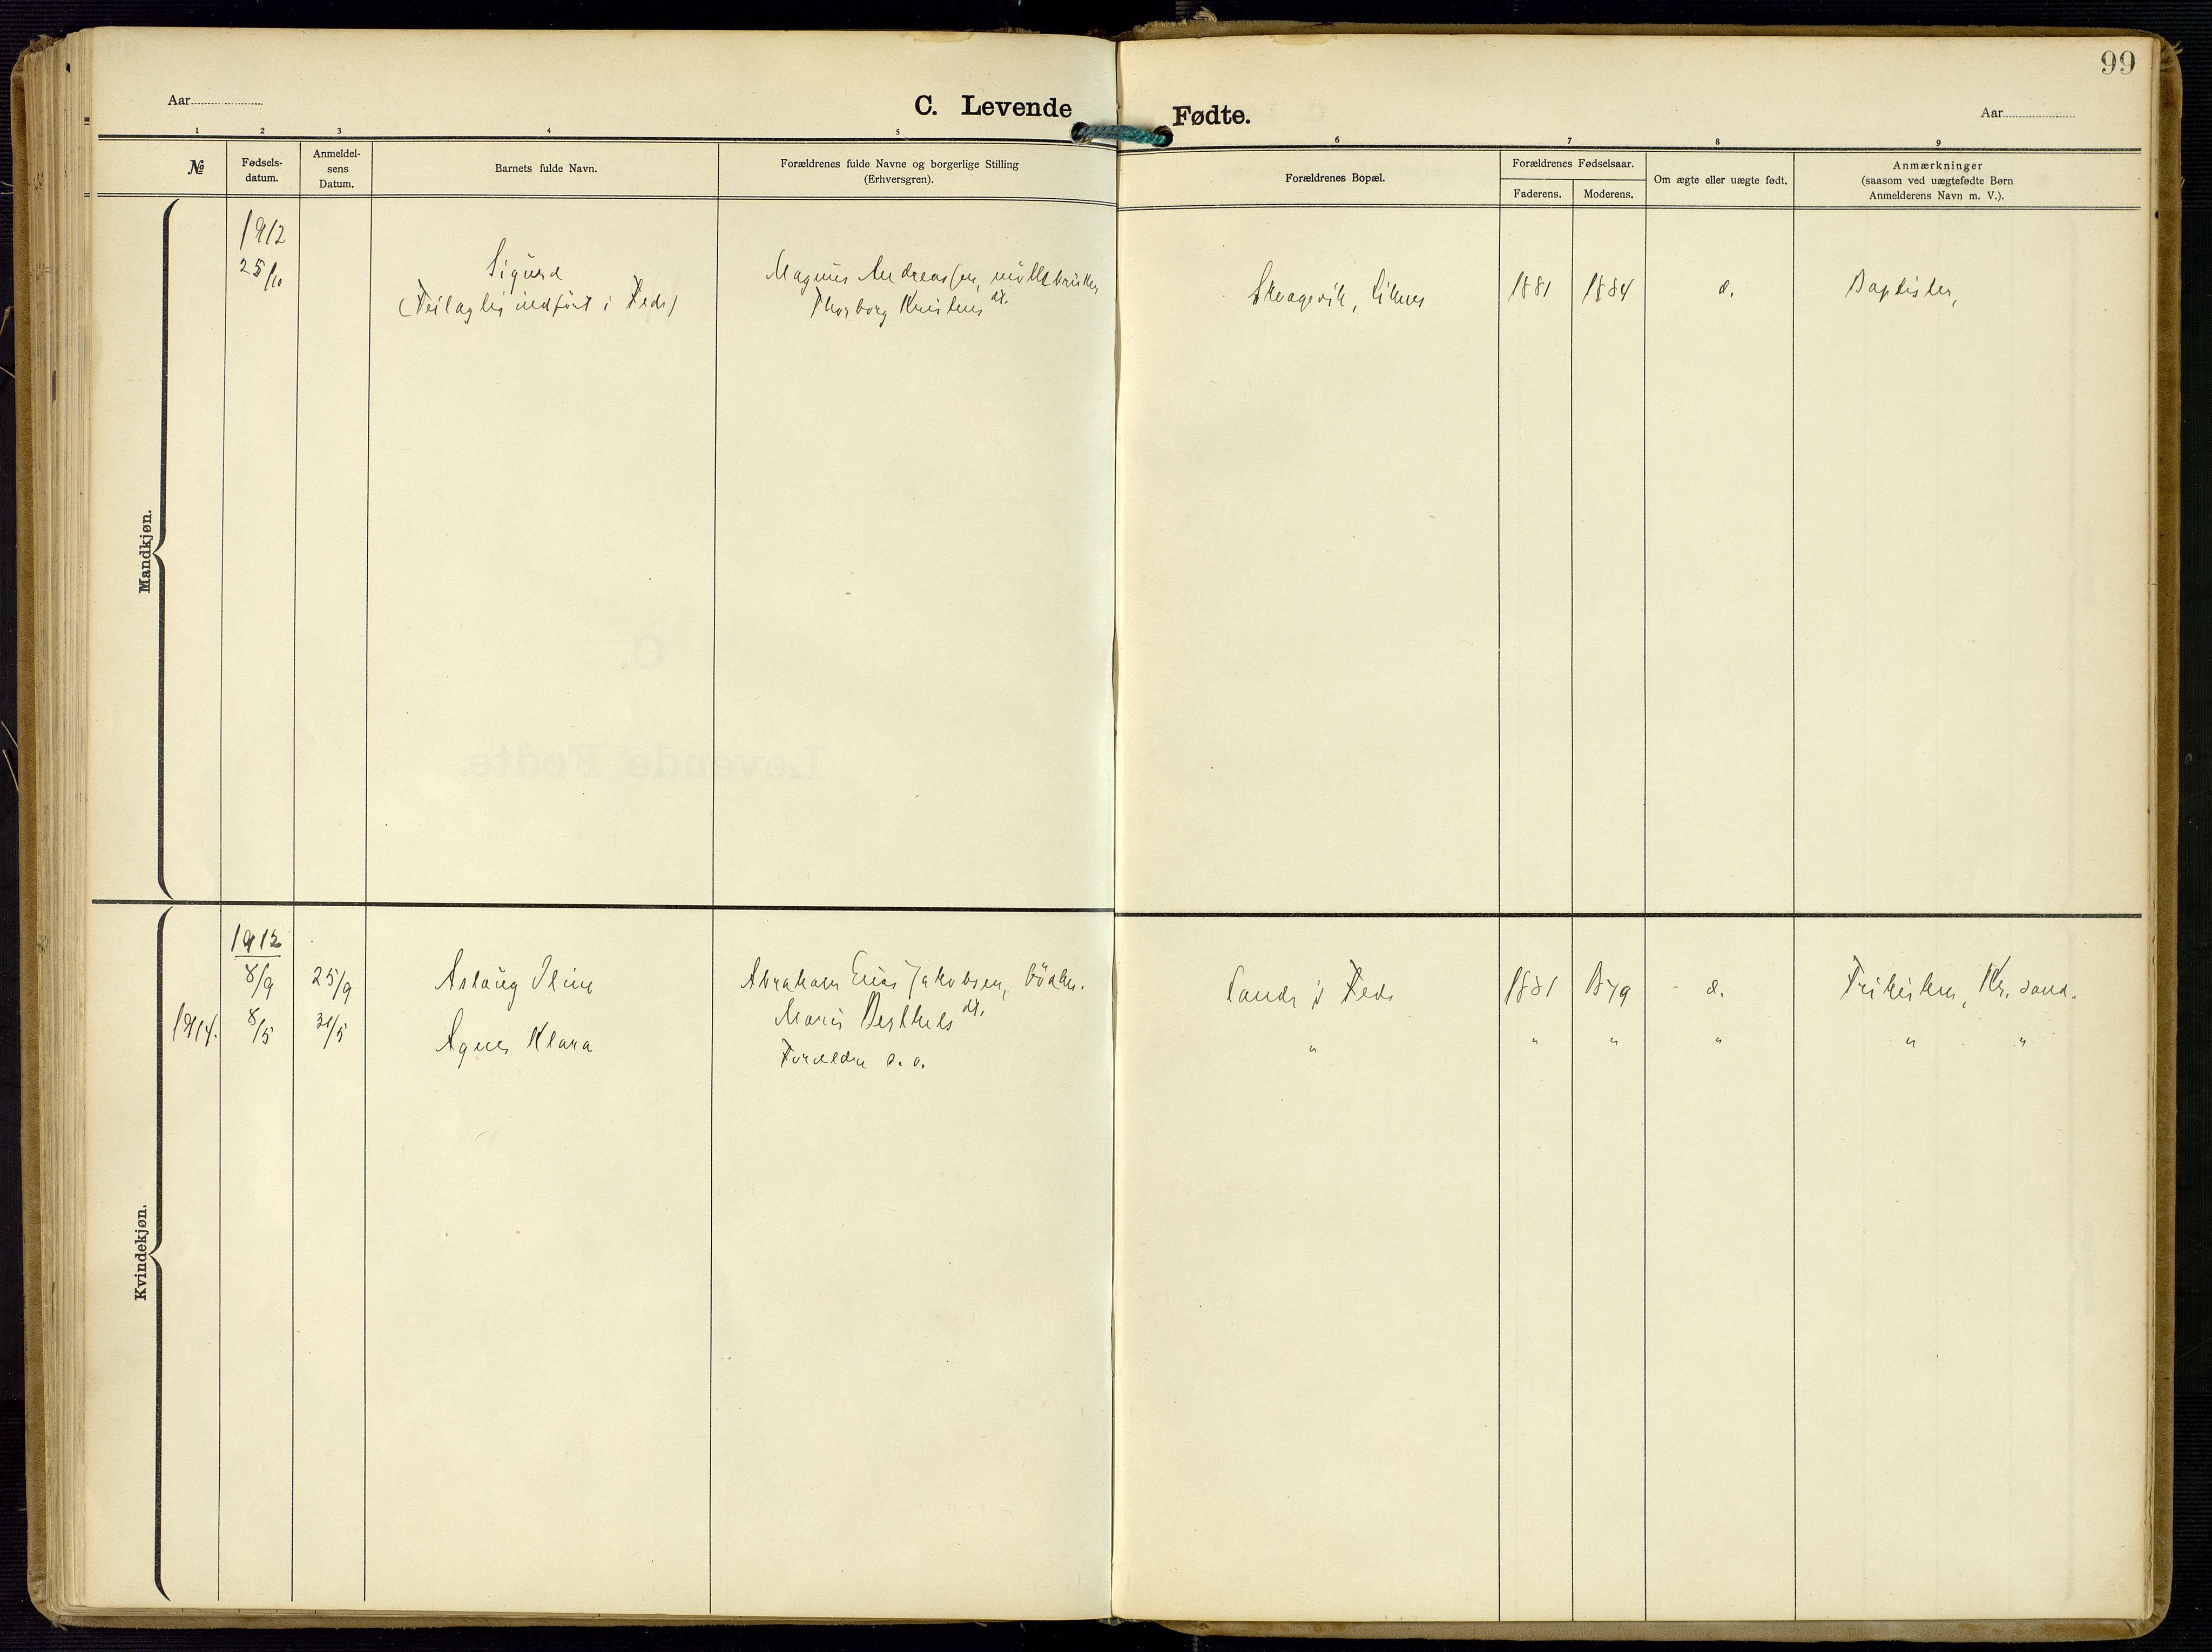 99
Aar
C. Levende Fødte.
Aar
1 2 3 4 5 6 7 8 9
№
Fødsels-
datum.
Anmeldel-
sens
Datum.
Barnets fulde Navn.
Forældrenes fulde Navne og borgerlige Stilling
(Erhversgren).
Forældrenes Bopæl.
Forældrenes Fødselsaar.
Faderens. Moderens.
Om ægte eller uægte født.
Anmærkninger
(saasom ved uægtefødte Børn
Anmelderens Navn m. V.).
Mandkjøn.
1912
25/10 Sigurd Magnus Andreassen, 1881 1884 æ. Baptister,
(Feilagtig indført i Feda) Thorborg dt.
Kvindekjøn.
1912
8/9 25/9 Aslaug Abraham Jakobsen, bödker. i Feda 1881 1879 æ. Frikirken, Kr. sand.
Marie Berthels dt.
1914. 8/5 31/5 Agnes Klara Forældre s. o. " " " " " "